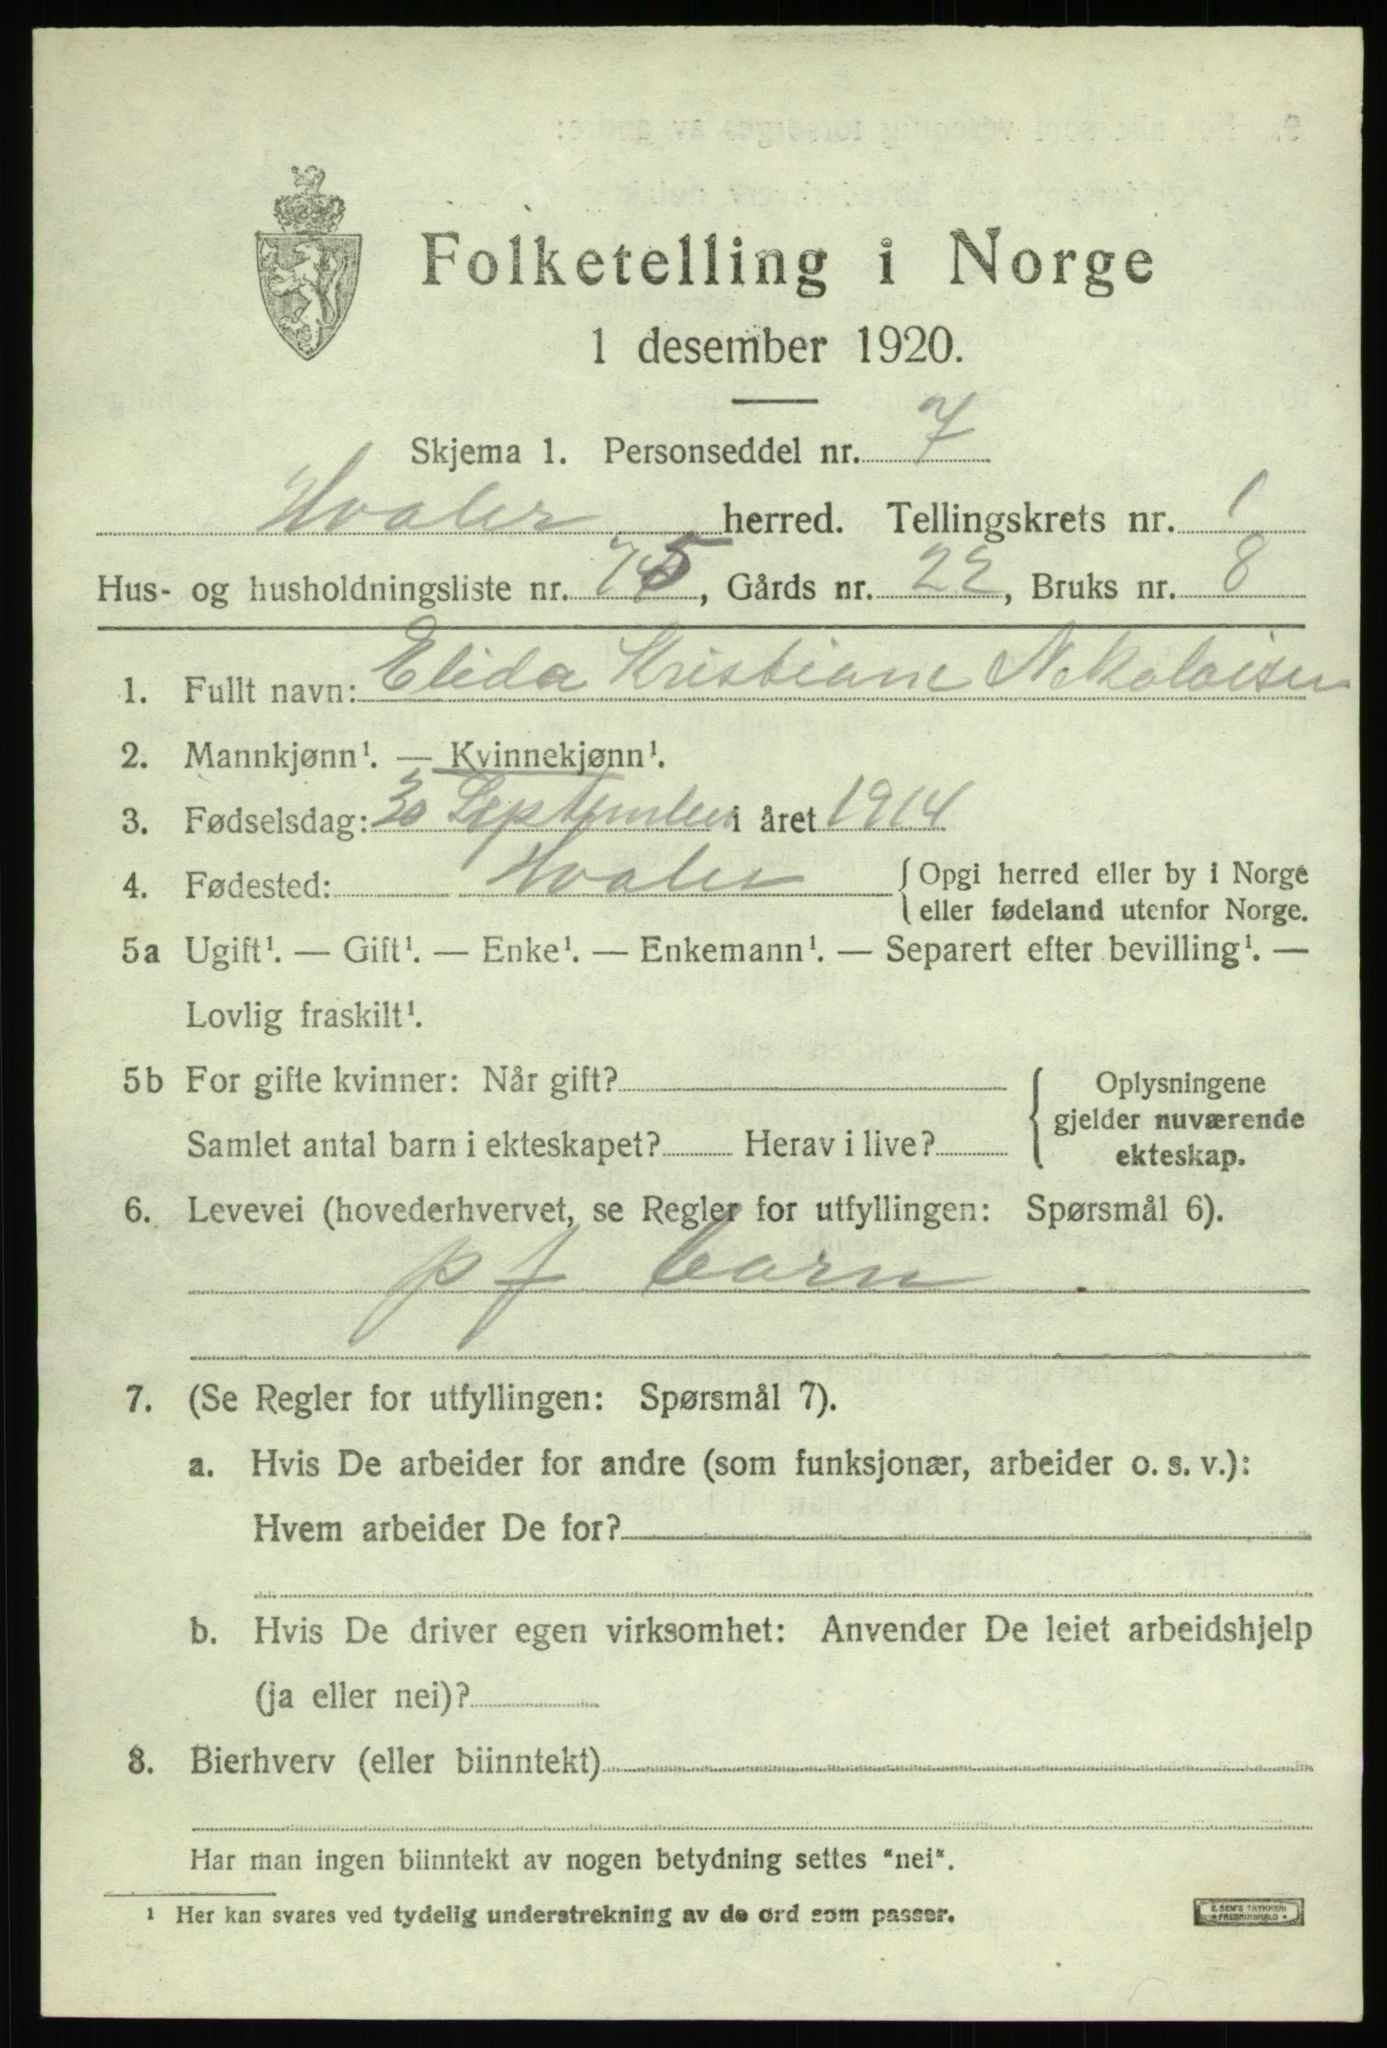 Folketelling i Norge
1 desember 1920.
Skjema 1. Personseddel nr. 7
Hvaler herred. Tellingskrets nr. 1
Hus- og husholdningsliste nr. 75, Gårds nr. 22, Bruks nr. 8
1. Fullt navn: Elida Kristiane Nekolaisen
2. Mannkjønn¹. — Kvinnekjønn¹.
3. Fødselsdag: 30 September i året 1914
4. Fødested: Hvaler {Opgi herred eller by i Norge
eller fødeland utenfor Norge.
5a Ugift¹. — Gift¹. — Enke¹. — Enkemann¹. — Separert efter bevilling¹. —
Lovlig fraskilt¹.
5b For gifte kvinner: Når gift? { Oplysningene
gjelder nuværende
Samlet antal barn i ekteskapet? Herav i live? ekteskap.
6. Levevei (hovederhvervet, se Regler for utfyllingen: Spørsmål 6).
p f barn
7. (Se Regler for utfyllingen: Spørsmål 7).
a. Hvis De arbeider for andre (som funksjonær, arbeider o. s. v.):
Hvem arbeider De for?
b. Hvis De driver egen virksomhet: Anvender De leiet arbeidshjelp
(ja eller nei)?
8. Bierhverv (eller biinntekt)
Har man ingen biinntekt av nogen betydning settes "nei".
¹ Her kan svares ved tydelig understrekning av de ord som passer.
E. SEM'S TRYKKERI
FREDRIKSHALD